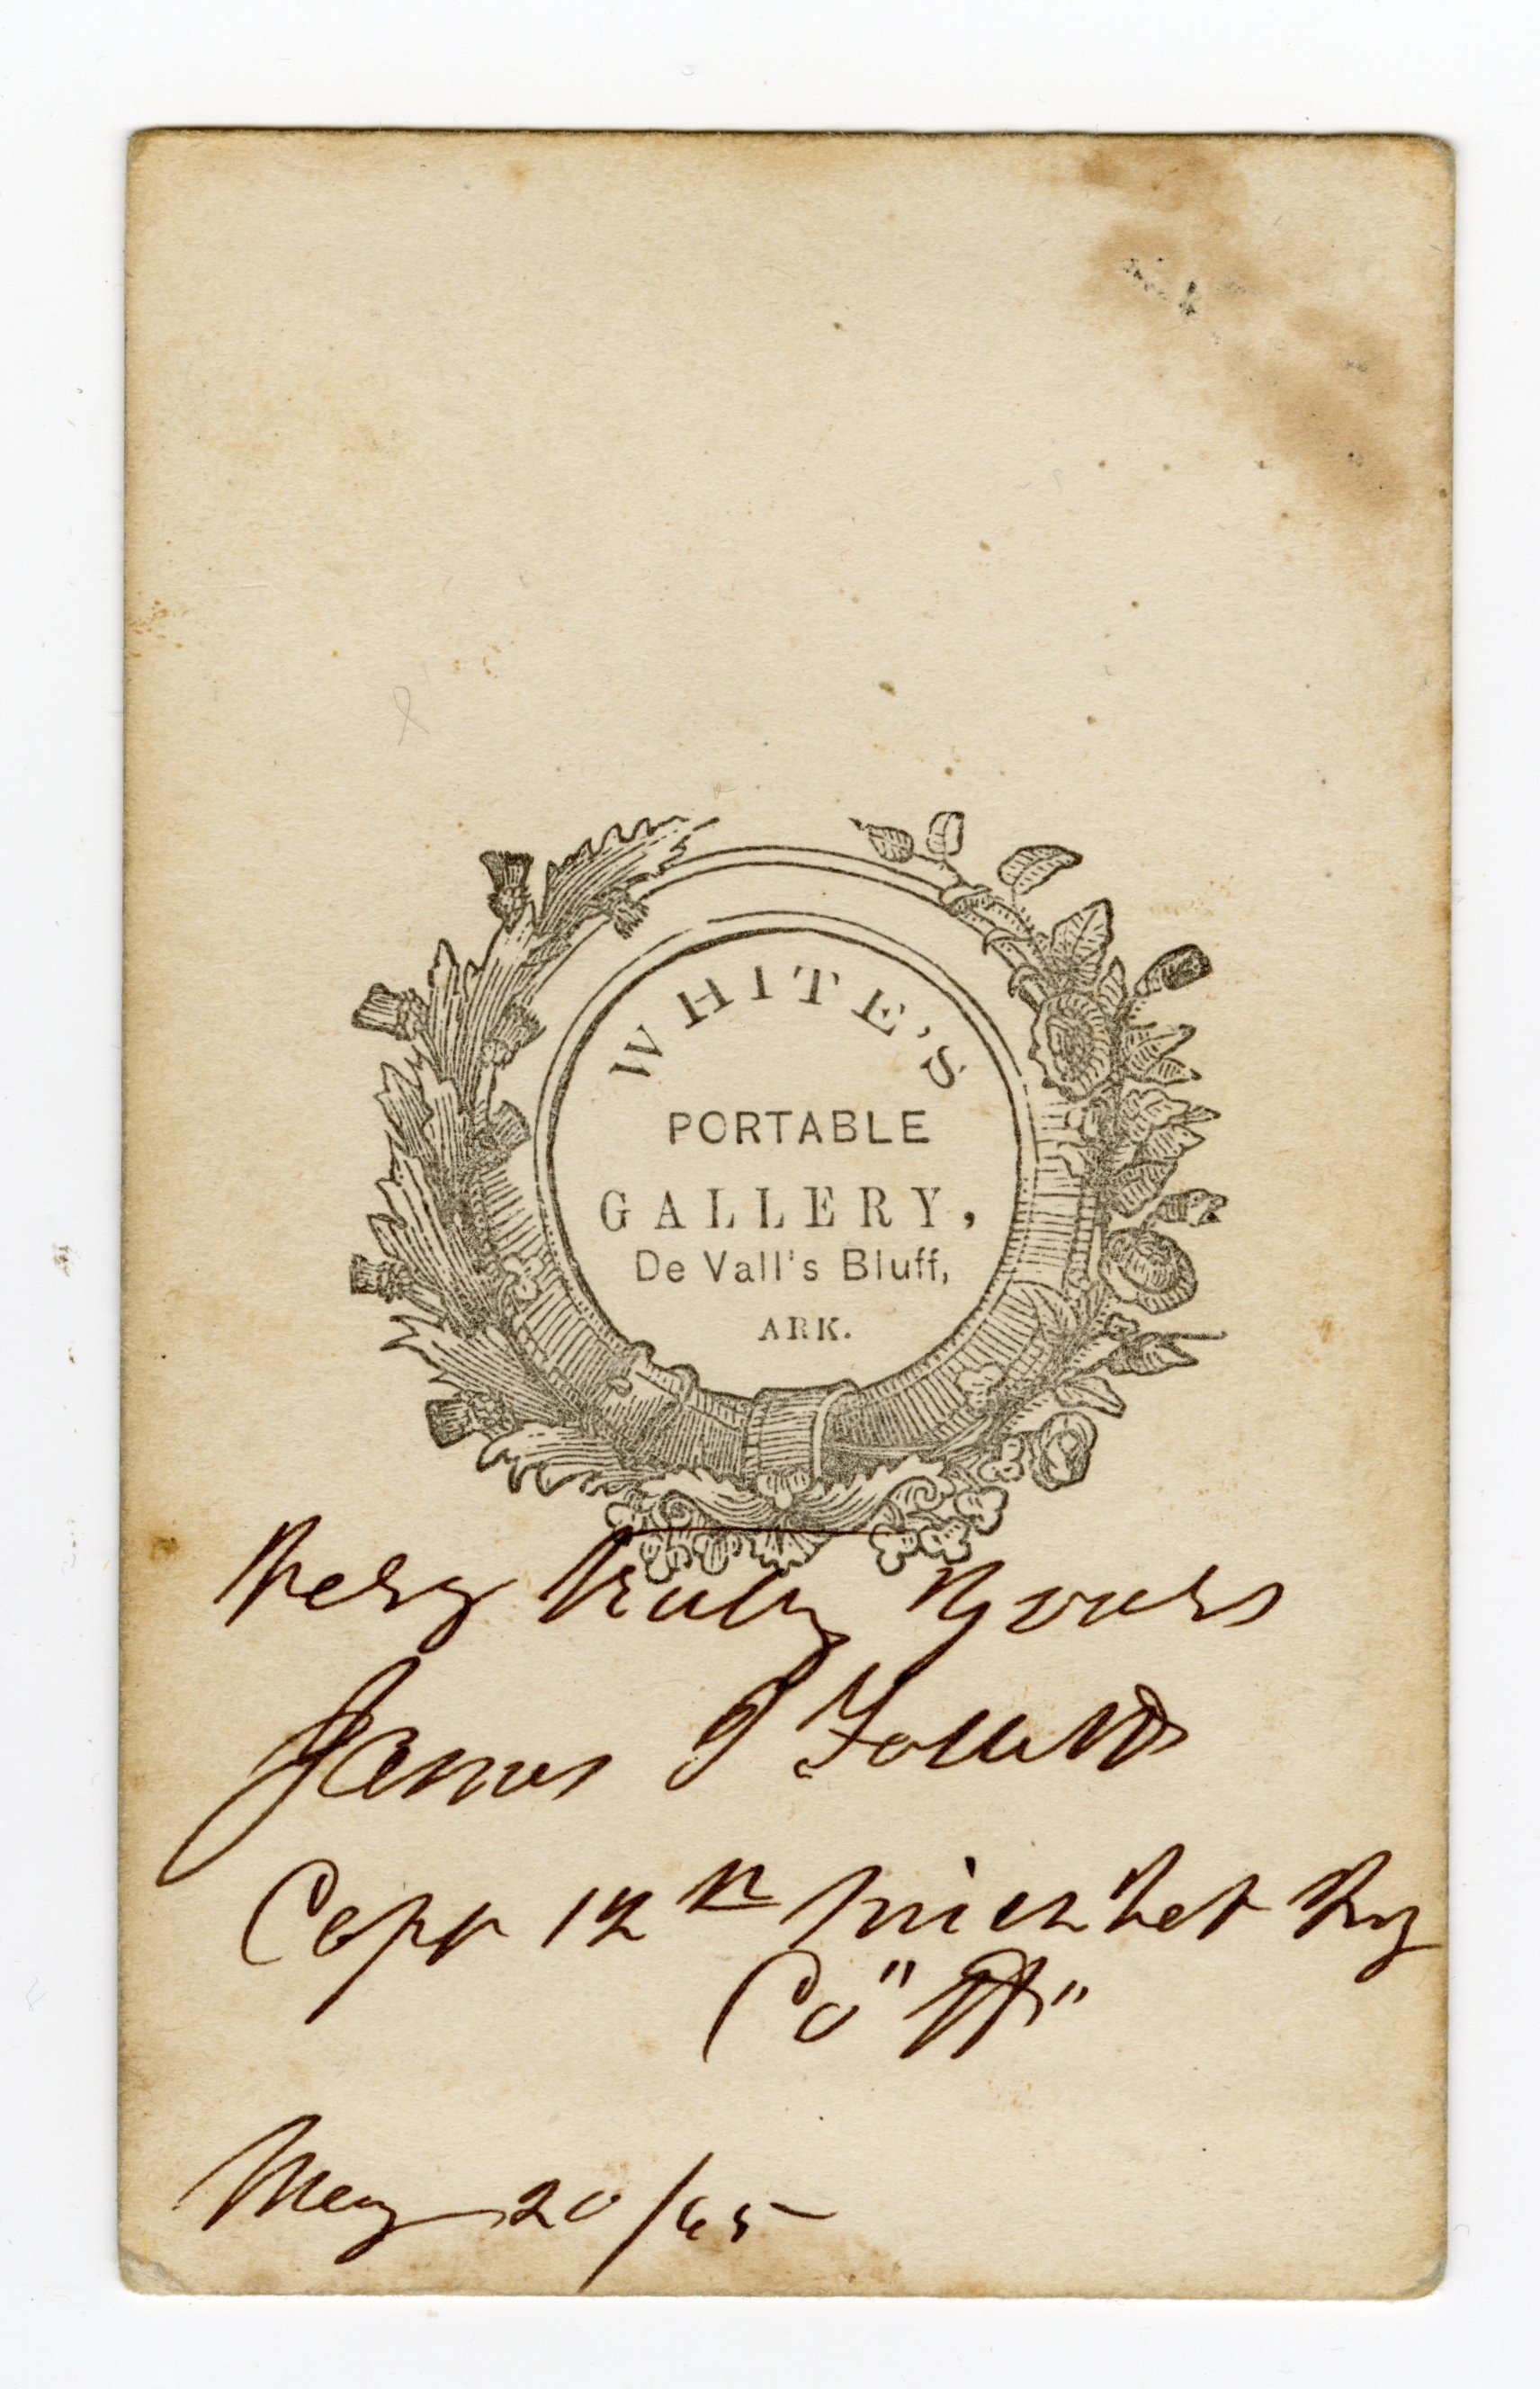 WHITE'S
PORTABLE
GALLERY,
De Vall's Bluff,
ARK.
Very Truly Yours
James
Capt 12th Mich Vet
Co " "
May 20/65